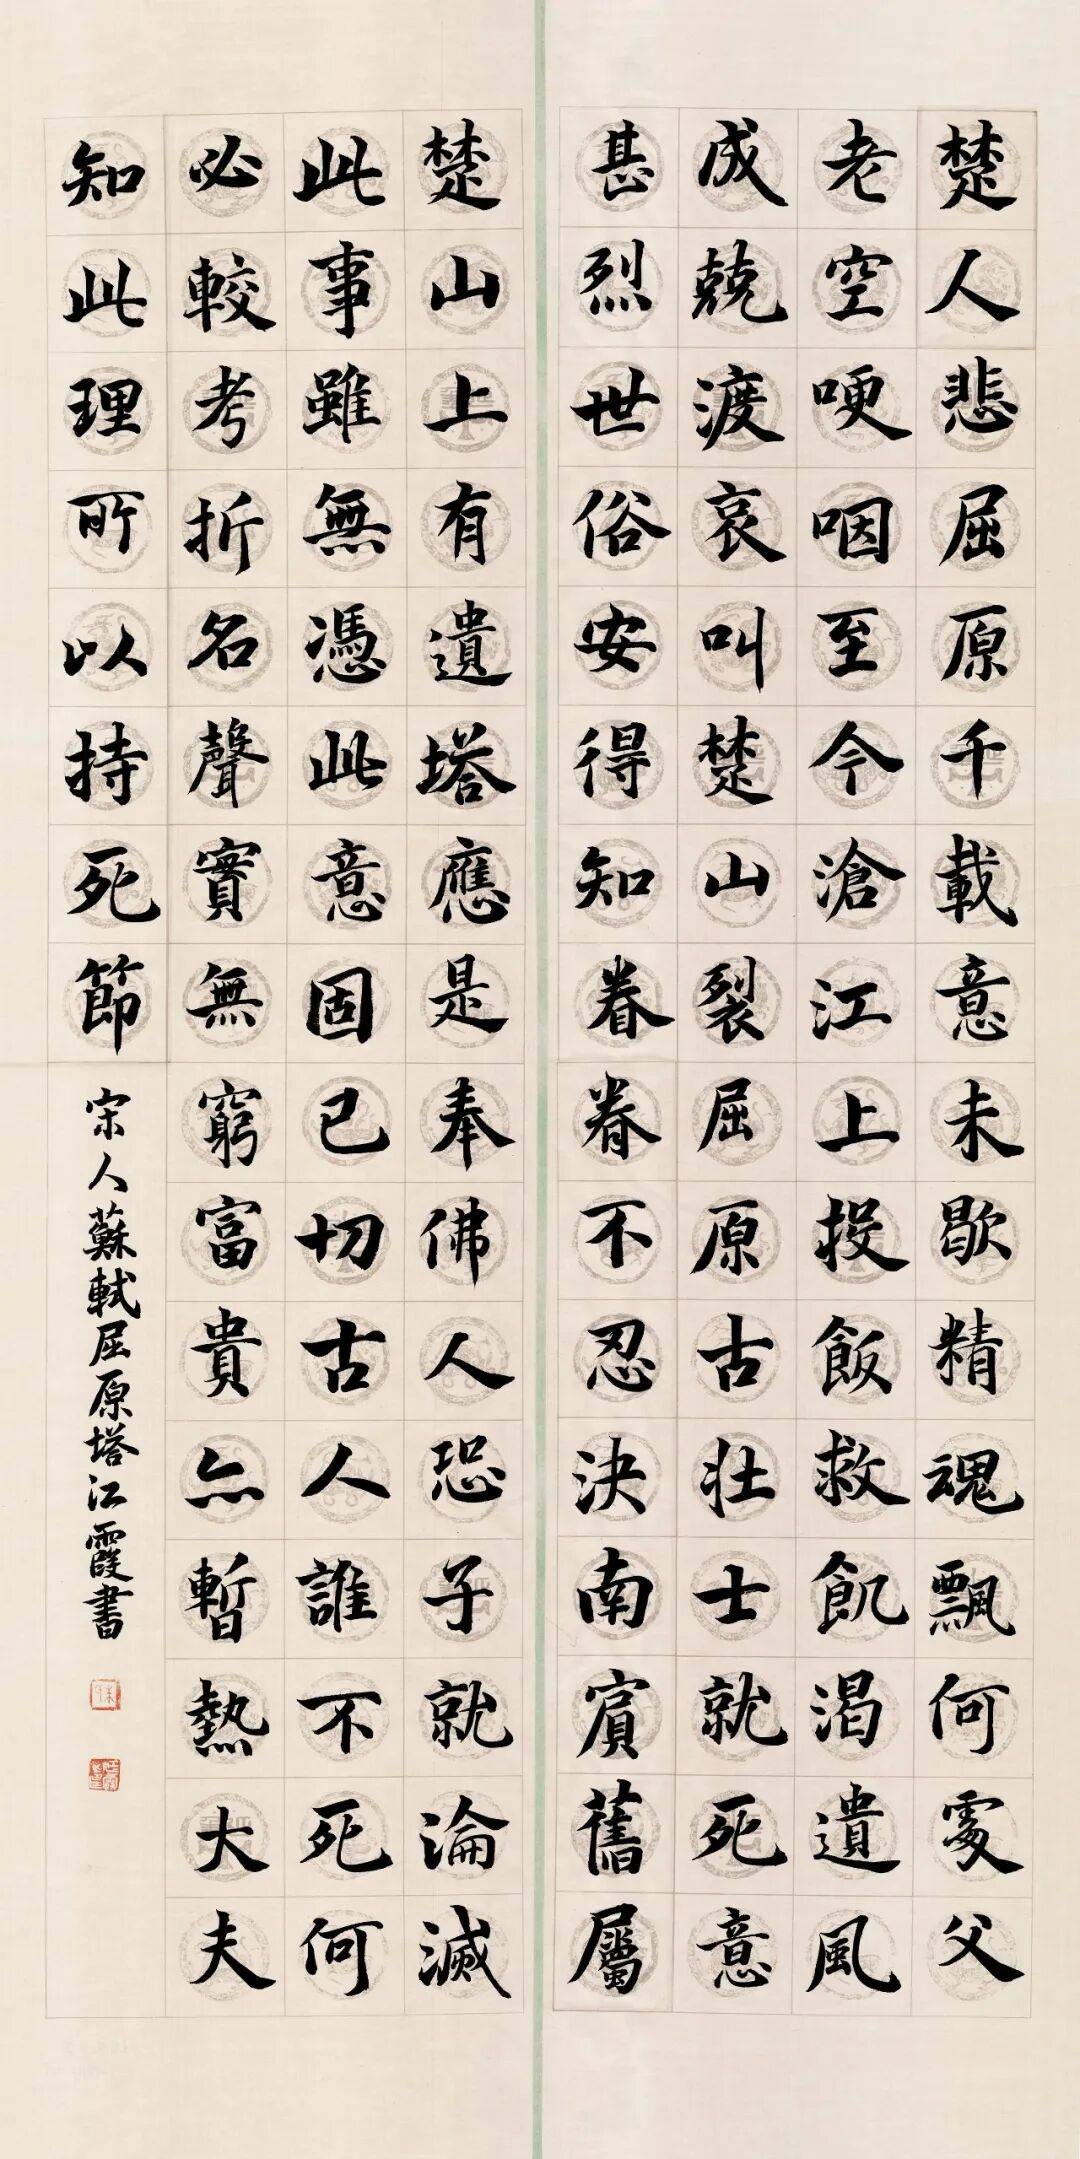 楚人悲屈原千載意未歇精魂飄何處父
老空哽咽至今滄江上投飯救飢渴遺風
成競渡哀叫楚山裂屈原古壯士就死意
甚烈世俗安得知眷眷不忍決南賓舊屬
楚山上有遺塔應是奉佛人恐子就淪滅
此事雖無憑此意固已切古人誰不死何
必較考折名聲實無窮富貴亦暫熱大夫
知此理所以持死節
宋人蘇軾屈原塔江霞書